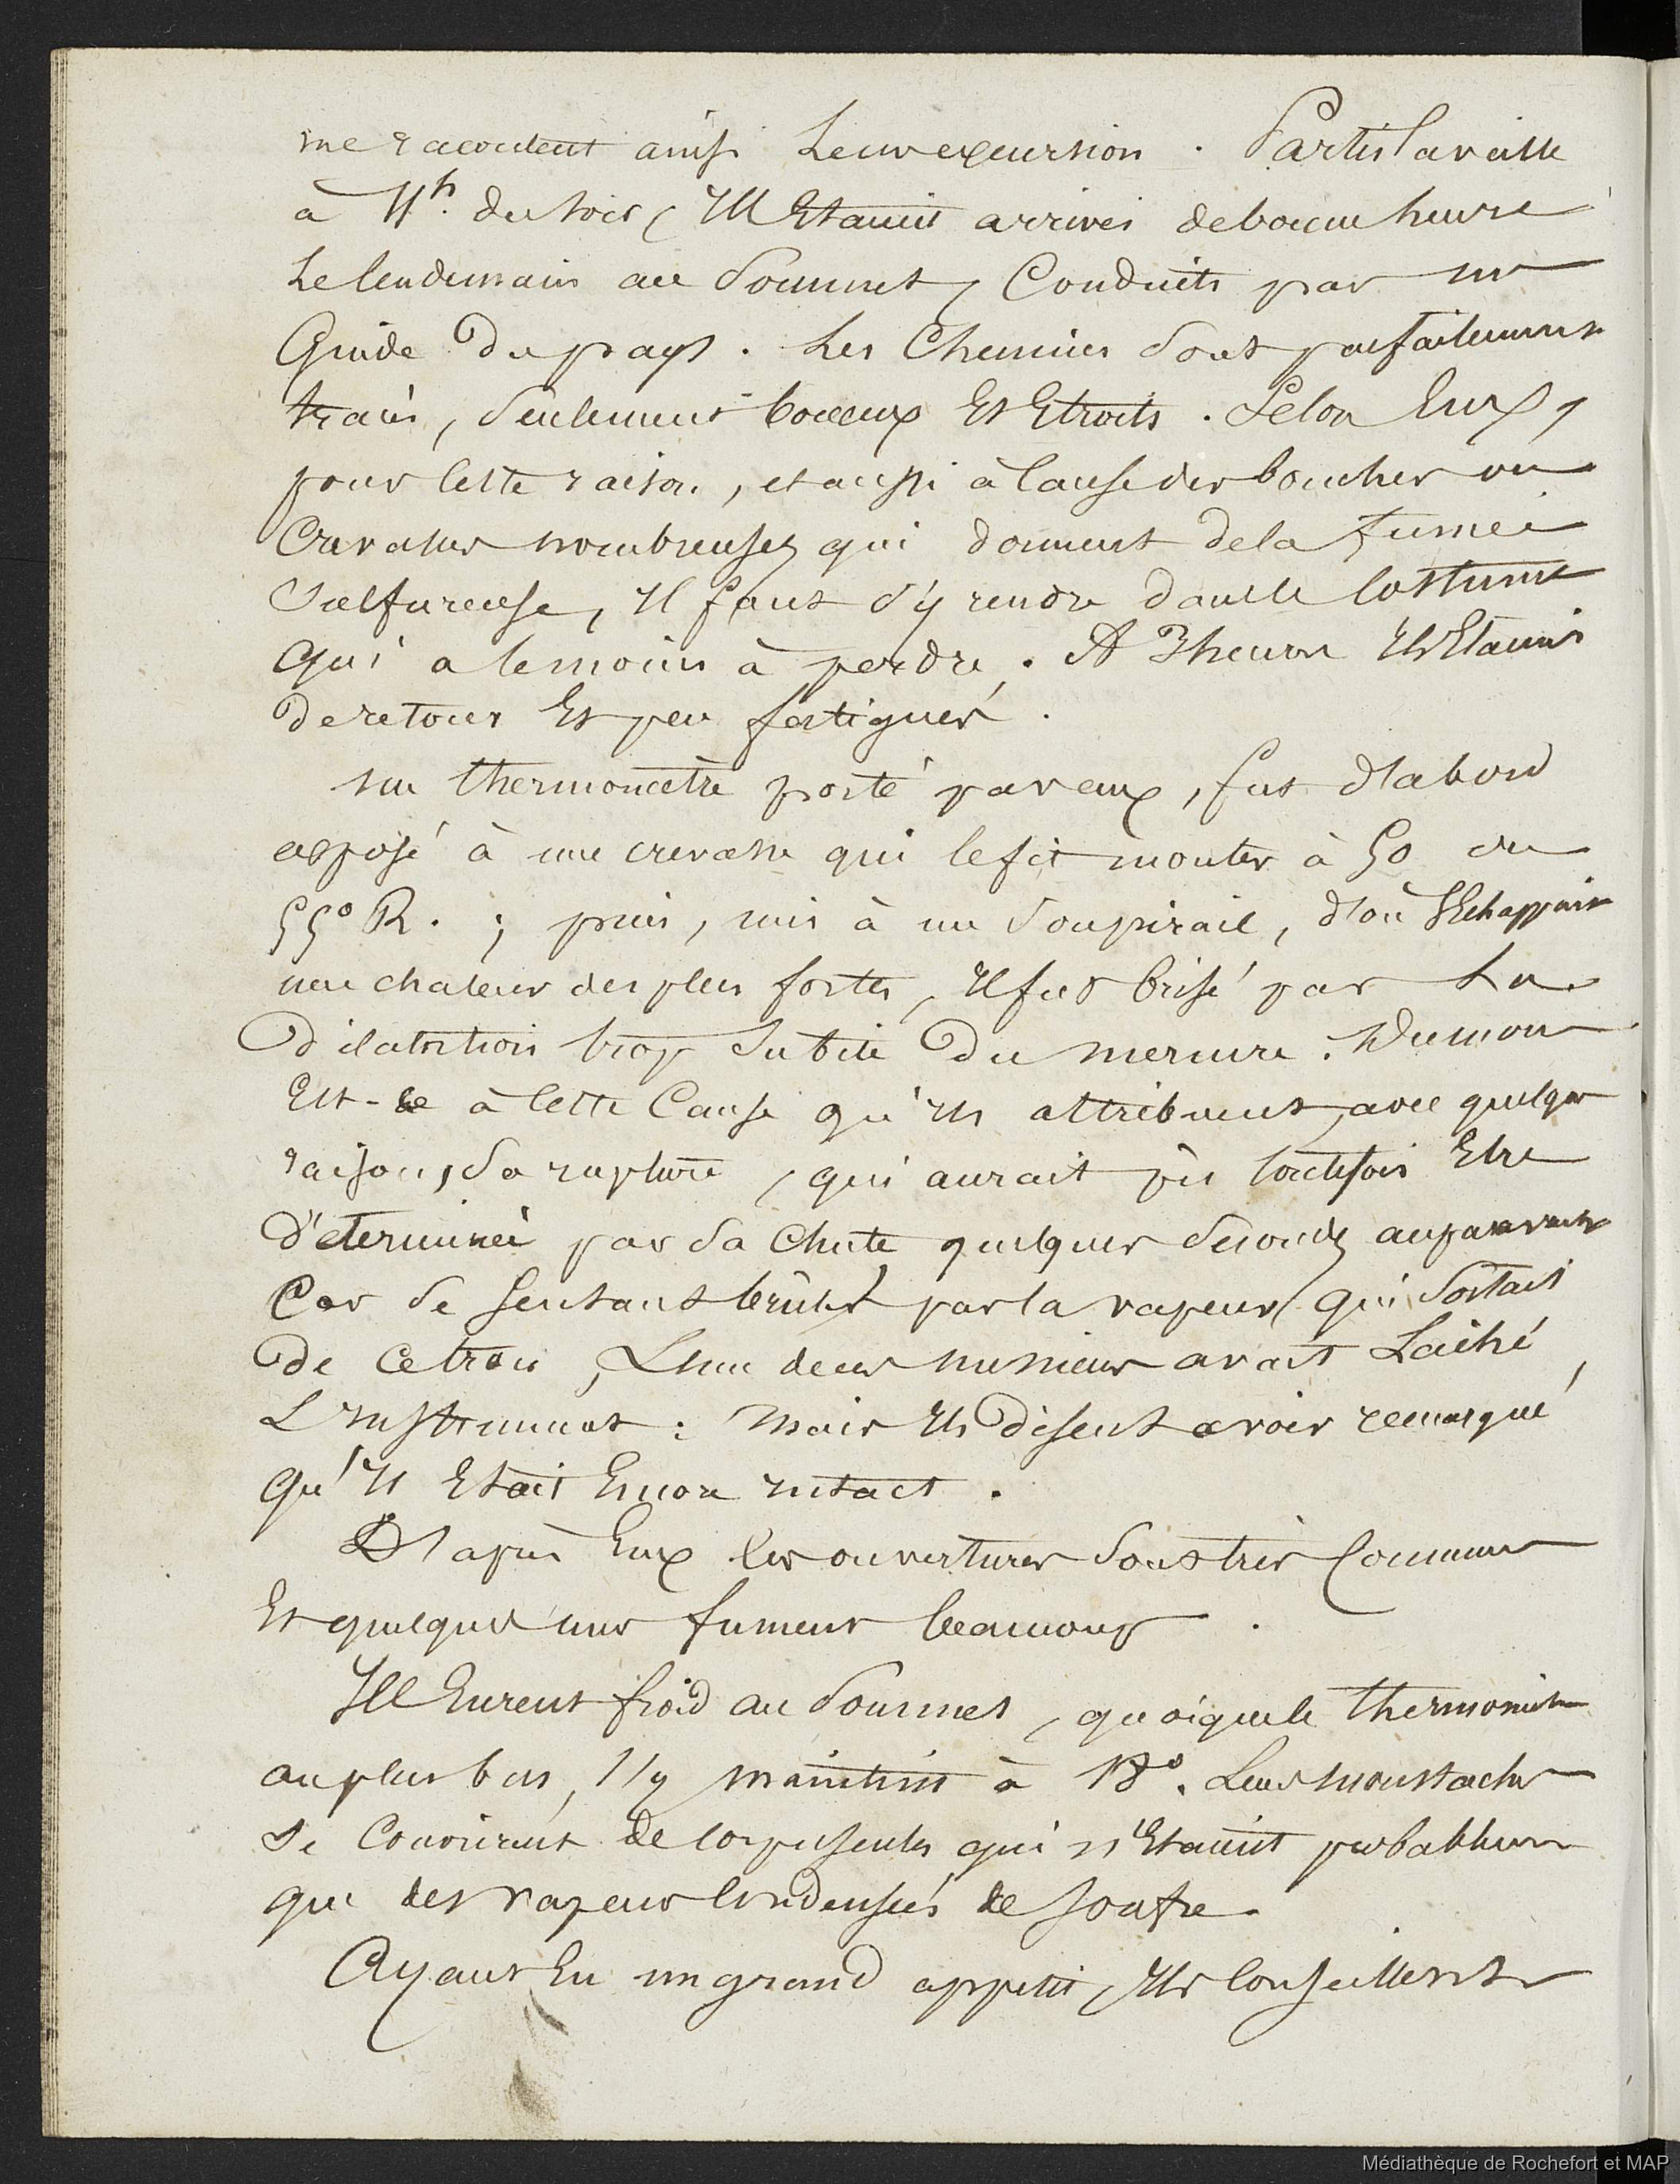 me racontent ainsi Leur excursion. Partis la veille
à 11h. du soir, Ils Etaient arrivés de bonne heure
Le lendemain au Sommet, Conduits par un
Guide Du pays. Les Chemins Sont parfaitement
tracés, Seulement boueux Et Etroits. Selon Eux,
pour Cette raison, et aussi à Cause des bouches ou
Crevasses nombreuses qui donnent de la fumée
Sulfureuse, Il faut S'y rendre dans le Costume
Qui a le moins à perdre. A 3 heures Ils Etaient
De retour Et peu fatigués.
Un thermomètre porté par eux, fut d'abord
exposé à une crevasse qui le fit monter à 50 ou
55° R. ; puis, mis à un Soupirail, d'où S'Echappait
une chaleur des plus fortes, Il fut brisé par La
Dilatation trop Subite Du mercure. Du moins
Est-ce à Cette Cause qu'Ils attribuent, avec quelque
raison, Sa rupture, qui aurait pu toutefois Etre
Déterminée par Sa Chute quelques Secondes auparavant
Car Se Sentant brûler par la vapeur qui Sortait
De ce trou, L'un de ces messieurs avait Lâché
L'Instrument : Mais Ils Disent avoir remarqué,
Qu'Il Etait Encore Intact.
D'après Eux les ouvertures Sont très Communes
Et quelques unes fument beaucoup.
Ils Eurent froid au Sommet, quoique le thermomètre
au plus bas, S'y maintint à 18°. Leurs moustaches
Se Couvrirent de Corpuscules qui n'Etaient probablement
que des vapeurs Condensées de Soufre.
Ayant Eu un grand appétit, Ils Conseillent